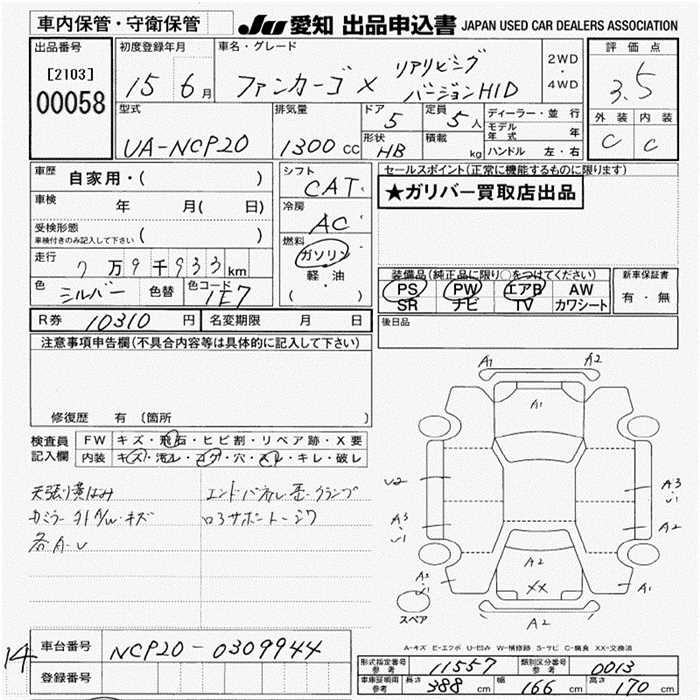 車内保管・守衛保管
JU 愛知 出品申込書 JAPAN USED CAR DEALERS ASSOCIATION
出品番号
[2103]
00058
初度登録年月
15 6月
車名・グレード
ファンカーゴ X リアリビング
バージョンHID
2WD
・
4WD
評価点
3.5
外装 内装
C C
型式
UA-NCP20
排気量
1300 CC
ドア 5
形状 HB
定員 5人
積載 kg
ディーラー・並行
モデル年式 年
ハンドル 左・右
車歴 自家用・( )
車検 年 月( 日)
受検形態
車検付きのみ記入して下さい ( )
走行 7万9千933km
色 シルバー 色替 色コード 1E7
シフト
CAT
冷房
AC
燃料
ガソリン
軽・油
( )
セールスポイント(正常に機能するものに限ります)
★ガリバー買取店出品
装備品(純正品に限り〇をつけてください)
PS PW エアB AW
SR ナビ TV カワシート
新車保証書
有・無
R券 10310 円 名変期限 月 日
後日品
注意事項申告欄(不具合内容等は具体的に記入して下さい)
修復歴 有 〔箇所
検査員
記入欄
FW キズ・飛石・ヒビ割・リペア跡・X要
内装 キズ・汚レ・コゲ・穴・スレ・キレ・破レ
各A・U
A1 A2
A1
U2
A3
U1
A3
U1
A2
XX
A3
U1
A1
A2
スペア
A-キズ E-エクボ U-凹み W-補修跡 S-サビ C-腐食 XX-交換済
14
車台番号 NCP20-0309944
登録番号
型式指定番号
参考 11557
類別区分番号
参考 0013
車庫証明用
参考 長さ 388 cm 幅 166 cm 高さ 170 cm